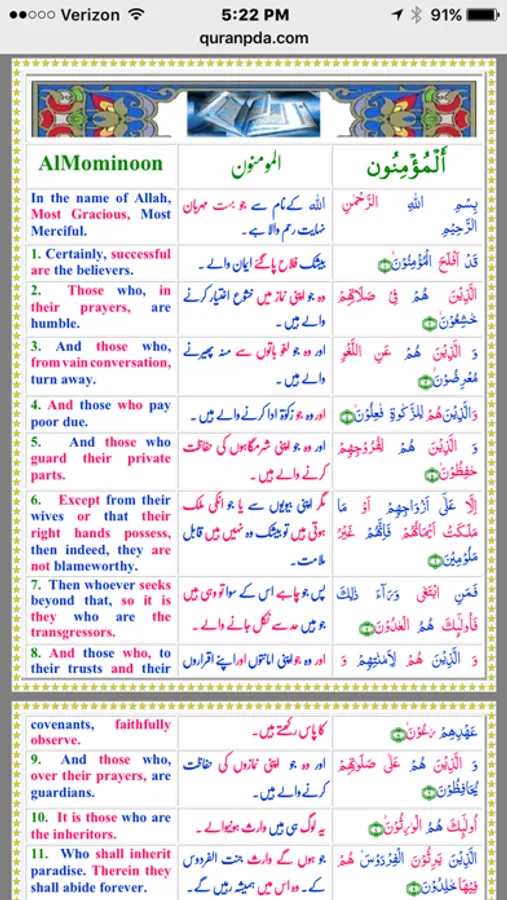 Verizon
5:22 PM
91%
quranpda.com
AlMominoon
المومنون
أَلْمُؤْمِنُون
In the name of Allah,
Most Gracious, Most
Merciful.
اللہ کےنام سے جو بہت مہربان
نہایت رحم والا ہے۔
بِسْمِ اللهِ الرَّحْمٰنِ
الرَّحِيْمِ
1. Certainly, successful
are the believers.
بیشک فلاح پاگئے ایمان والے ۔
قَدْ اَفْلَحَ الْمُؤْمِنُوْنَۙ
2. Those who, in
their prayers, are
humble.
وہ جو اپنی نماز میں خشوع اختیار کرنے
والے ہیں ۔
الَّذِيْنَ هُمْ فِىْ صَلَاتِهِمْ
خٰشِعُوْنَۙ
3. And those who,
from vain conversation,
turn away.
اور وہ جو لغو باتوں سے منہ پھیرنے
والے ہیں ۔
وَ الَّذِيْنَ هُمْ عَنِ اللَّغْوِ
مُعْرِضُوْنَۙ
4. And those who pay
poor due.
اور وہ جو زکوٰۃ ادا کرنےوالے ہیں ۔
وَالَّذِيْنَ هُمْ لِلزَّكٰوةِ فٰعِلُوْنَۙ
5. And those who
guard their private
parts.
اور وہ جو اپنی شرمگاہوں کی حفاظت
کرنے والے ہیں۔
وَ الَّذِيْنَ هُمْ لِفُرُوْجِهِمْ
حٰفِظُوْنَۙ
6. Except from their
wives or that their
right hands possess,
then indeed, they are
not blameworthy.
مگر اپنی بیویوں سے یا جو انکی ملک
ہوتی ہیں تو بیشک وہ نہیں ہیں قابل
ملامت۔
اِلَّا عَلٰٓى اَزْوَاجِهِمْ اَوْ مَا
مَلَكَتْ اَيْمَانُهُمْ فَاِنَّهُمْ غَيْرُ
مَلُوْمِيْنَۚ
7. Then whoever seeks
beyond that, so it is
they who are the
transgressors.
پس جو چاہے اس کے سوا تو وہی ہیں
جو ہیں حد سے نکل جانے والے ۔
فَمَنِ ابْتَغٰى وَرَآءَ ذٰلِكَ
فَاُولٰٓٮِٕكَ هُمُ الْعٰدُوْنَۚ
8. And those who, to
their trusts and their
اور وہ جو اپنی امانتوں اور اپنے اقراروں
وَ الَّذِيْنَ هُمْ لِاَمٰنٰتِهِمْ وَ
covenants, faithfully
observe.
کا پاس رکھتے ہیں۔
عَهْدِهِمْ رٰعُوْنَۙ
9. And those who,
over their prayers, are
guardians.
اور وہ جو اپنی نمازوں کی حفاظت
کرنےوالے ہیں۔
وَ الَّذِيْنَ هُمْ عَلٰى صَلَوٰتِهِمْ
يُحَافِظُوْنَۘ
10. It is those who are
the inheritors.
یہ لوگ ہی ہیں وارث ہونیوالے ۔
اُولٰٓٮِٕكَ هُمُ الْوٰرِثُوْنَۙ
11. Who shall inherit
paradise. Therein they
shall abide forever.
جو ہوں گے وارث جنت الفردوس
کے۔ وہ اس میں ہمیشہ رہیں گے۔
الَّذِيْنَ يَرِثُوْنَ الْفِرْدَوْسَؕ هُمْ
فِيْهَا خٰلِدُوْنَ